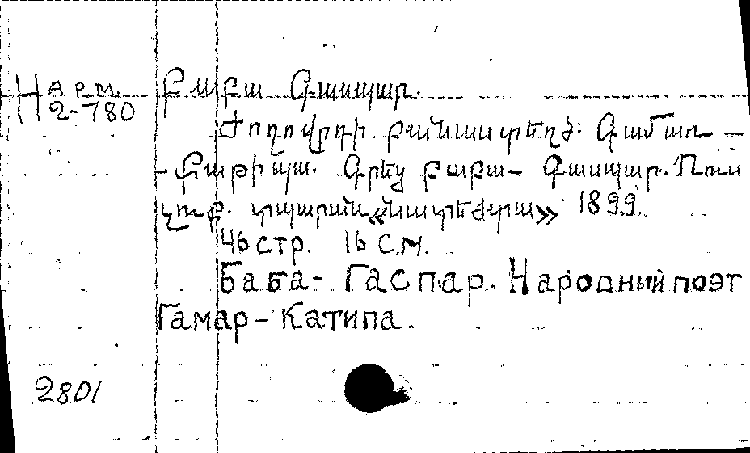 Нарт. Բաբա Գասպար.
2-780
Ժողովրդի բանաստեղծ. Գամառ-
-Քաթիպա. Գրեց բաբա- Գասպար.
տպարան «նատեժդա» 1899.
46 стр. 16 см.
Баба- Гаспар. Народный поэт
Гамар-Катипа.
2801